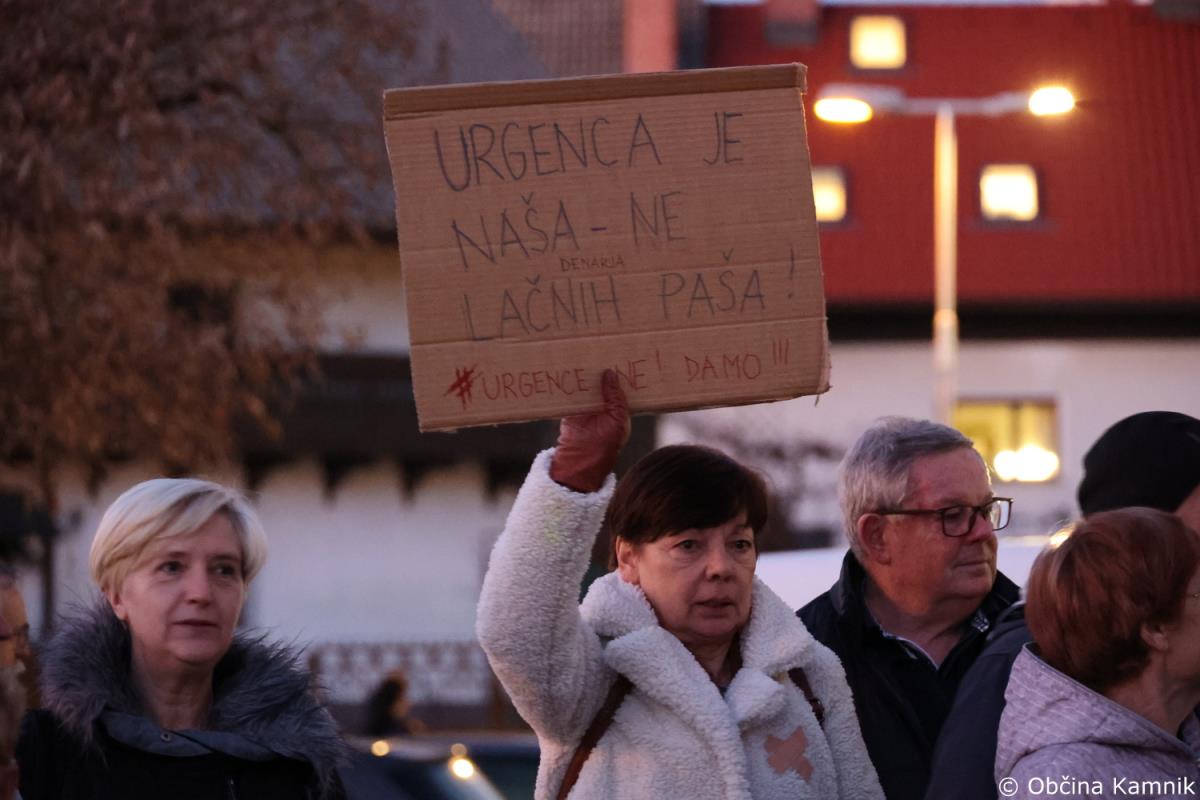 URGENCA JE
NAŠA - NE
DENARJA
LAČNIH PAŠA!
#URGENCE NE! DAMO!!!
© Občina Kamnik